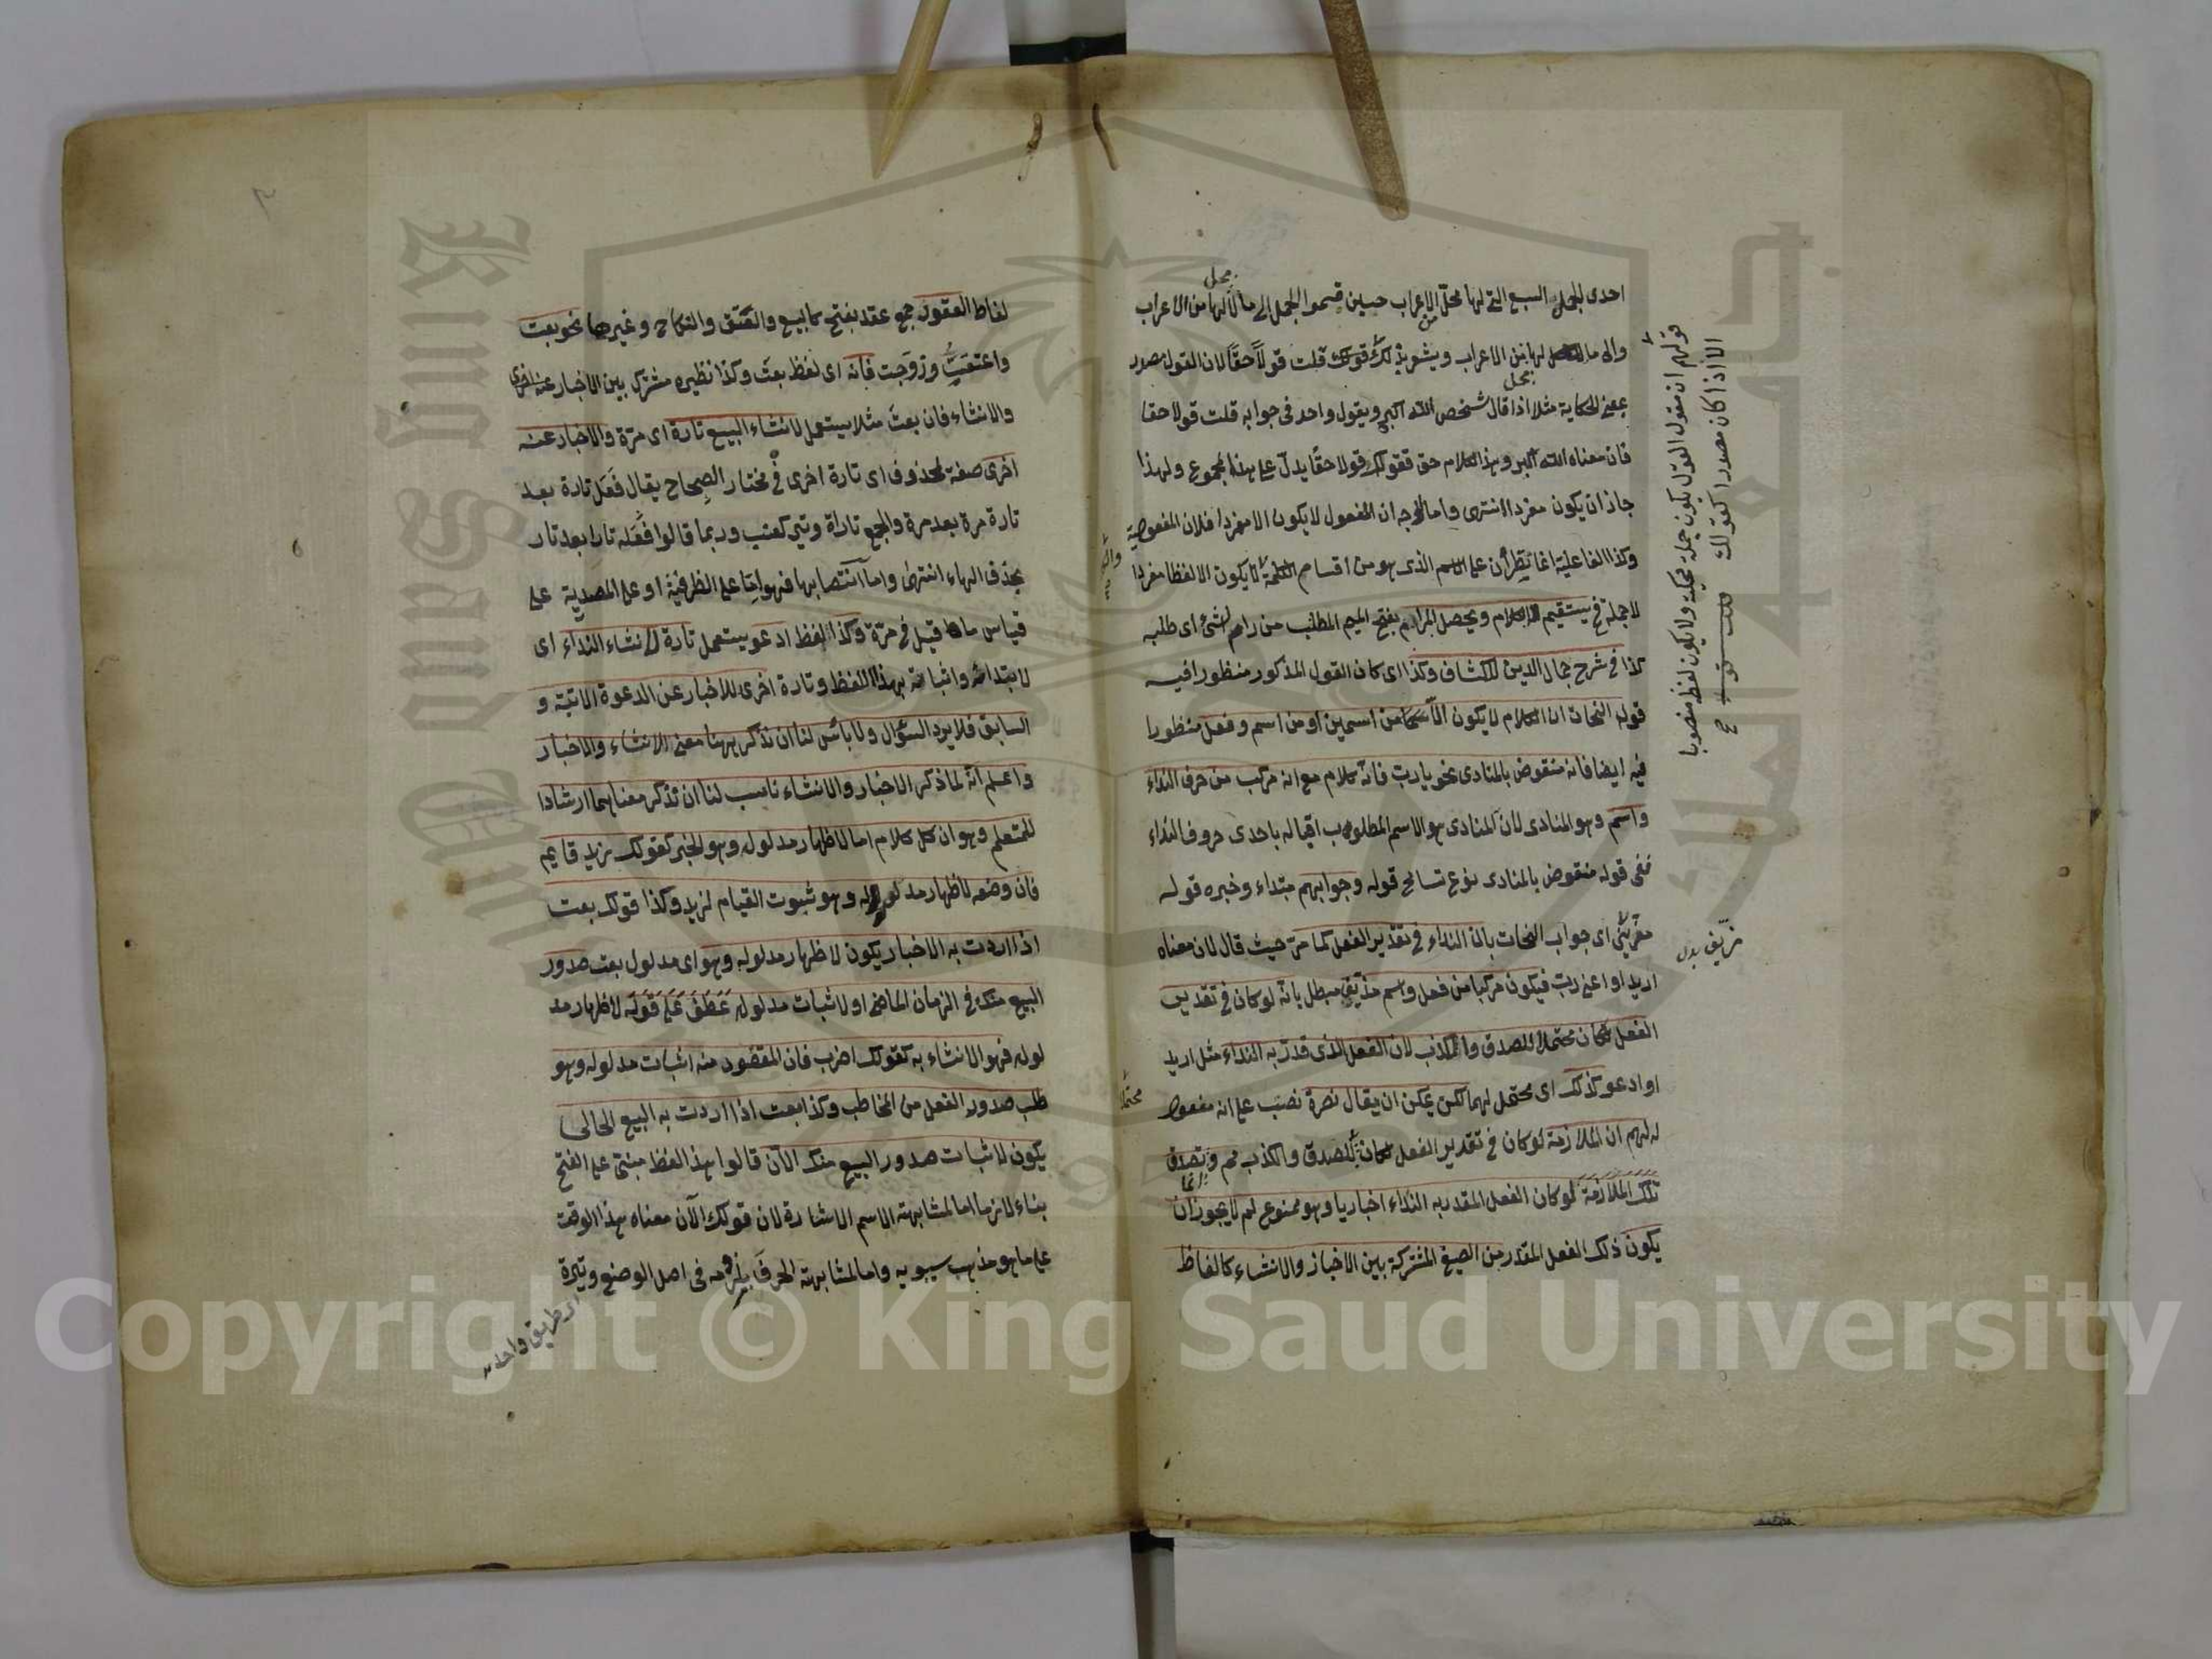 احدى الجمل السبع التي لها محل الاعراب حين قسموا الجمل الى ما لا لها من الاعراب
محل
والى ما لها من الاعراب ويشعر بذلك قولك قلت قولاً حقاً لان القول مصدر
محل
بمعنى الحكاية مثلا اذا قال شخص الله اكبر ويقول واحد في جوابه قلت قولا حقا
فان معناه الله اكبر وهذا الكلام حق فقولك قولا حقا يدل على هذا المجموع ولهذا
جاز ان يكون مفردا انتهى واما ان المفعول لا يكون الا مفردا فلان المفعولية
وكذا الفاعلية انما على الاسم الذى هو من اقسام الكلمة لا يكون الا لفظا مفردا
لا جملة فح يستقيم الكلام ويحصل المرام بفتح الميم المطلب من رام الشئ اى طلبه
كذا فى شرح جمال الدين للكشاف وكذا اى كان القول المذكور منظورا فيه
قوله النحات ان الكلام لا يكون الا من اسمين او من اسم وفعل منظورا
فيه ايضا فانه منقوض بالمنادى نحو يا رب فانه كلام مع انه مركب من حرف النداء
واسم وهو المنادى لان المنادى هو الاسم المطلوب اقباله باحدى حروف النداء
ففى قوله منقوض بالمنادى نوع تسامح قوله وجوابهم مبتداء وخبره قوله
اى جواب النحات بان النداء فى تقدير الفعل كما مر حيث قال لان معناه
اريد او اعنى رب فيكون مركبا من فعل واسم مبطل بانه لو كان فى تقدير
الفعل لكان محتملا للصدق والكذب لان الفعل الذى قدر به النداء مثل اريد
او ادعو كذلك اى محتمل لهما لكن يمكن ان يقال نصرة نصب على انه مفعول
له لهم ان الملازمة لو كان فى تقدير الفعل لكان للصدق والكذب
محتملا
تلك الملازمة لو كان الفعل المقدر به النداء اخباريا وهو ممنوع لم لا يجوز ان
يكون ذلك الفعل المقدر من الصيغ المشتركة بين الاخبار والانشاء كالفاظ
قولهم ان مقول القول يكون جملة محكية ولا يكون لفظه منصوبا
الا اذا كان مصدرا كقولك قلت قولا
لفاظ العقود جمع عقد بفتح كالبيع والعتق والنكاح وغيرها نحو بعت
واعتقت وزوجت فانه اى لفظ بعت وكذا نظيره مشترك بين الاخبار
والانشاء فان بعت مثلا يستعمل لانشاء البيع تارة اى مرة والاخبار عنه
اخرى صفة لمحذوف اى تارة اخرى فى مختار الصحاح يقال فعل تارة بعد
تارة مرة بعد مرة والجمع تارات وتير كعنب وربما قالوا فعله تارا بعد تار
بحذف الهاء انتهى واما انتصابها فهو اما على الظرفية او على المصدرية على
قياس ما قيل فى مرة وكذا لفظ ادعو يستعمل تارة لانشاء النداء اى
لابتدائه واثباته بهذا اللفظ وتارة اخرى للاخبار عن الدعوة الآتية و
السابق فلا يرد السؤال ولا بأس لنا ان نذكر ههنا معنى الانشاء والاخبار
واعلم انه لما ذكر الاخبار والانشاء ناسب لنا ان نذكر معناهما ارشادا
للمتعلم وهو ان كل كلام اما لاظهار مدلوله وهو الخبر كقولك زيد قايم
فان وضعه لاظهار مدلوله وهو ثبوت القيام لزيد وكذا قولك بعت
اذا اردت به الاخبار يكون لاظهار مدلوله وهو اى مدلول بعت صدور
البيع منك فى الزمان الماضى او لاثبات مدلوله عطف على قوله لاظهار مد
لوله فهو الانشاء به كقولك اضرب فان المقصود منه اثبات مدلوله وهو
طلب صدور الفعل من المخاطب وكذا بعت اذا اردت به البيع الحالى
يكون لاثبات صدور البيع منك الآن قالوا هذا لفظ مبنى على الفتح
بناء لازما اما لمشابهته الاسم الاشارة لان قولك الآن معناه هذا الوقت
على ما هو مذهب سيبويه واما لمشابهته الحرف بلزومه فى اصل الوضع وتيرة
اى طريق واحد
Copyright © King Saud University